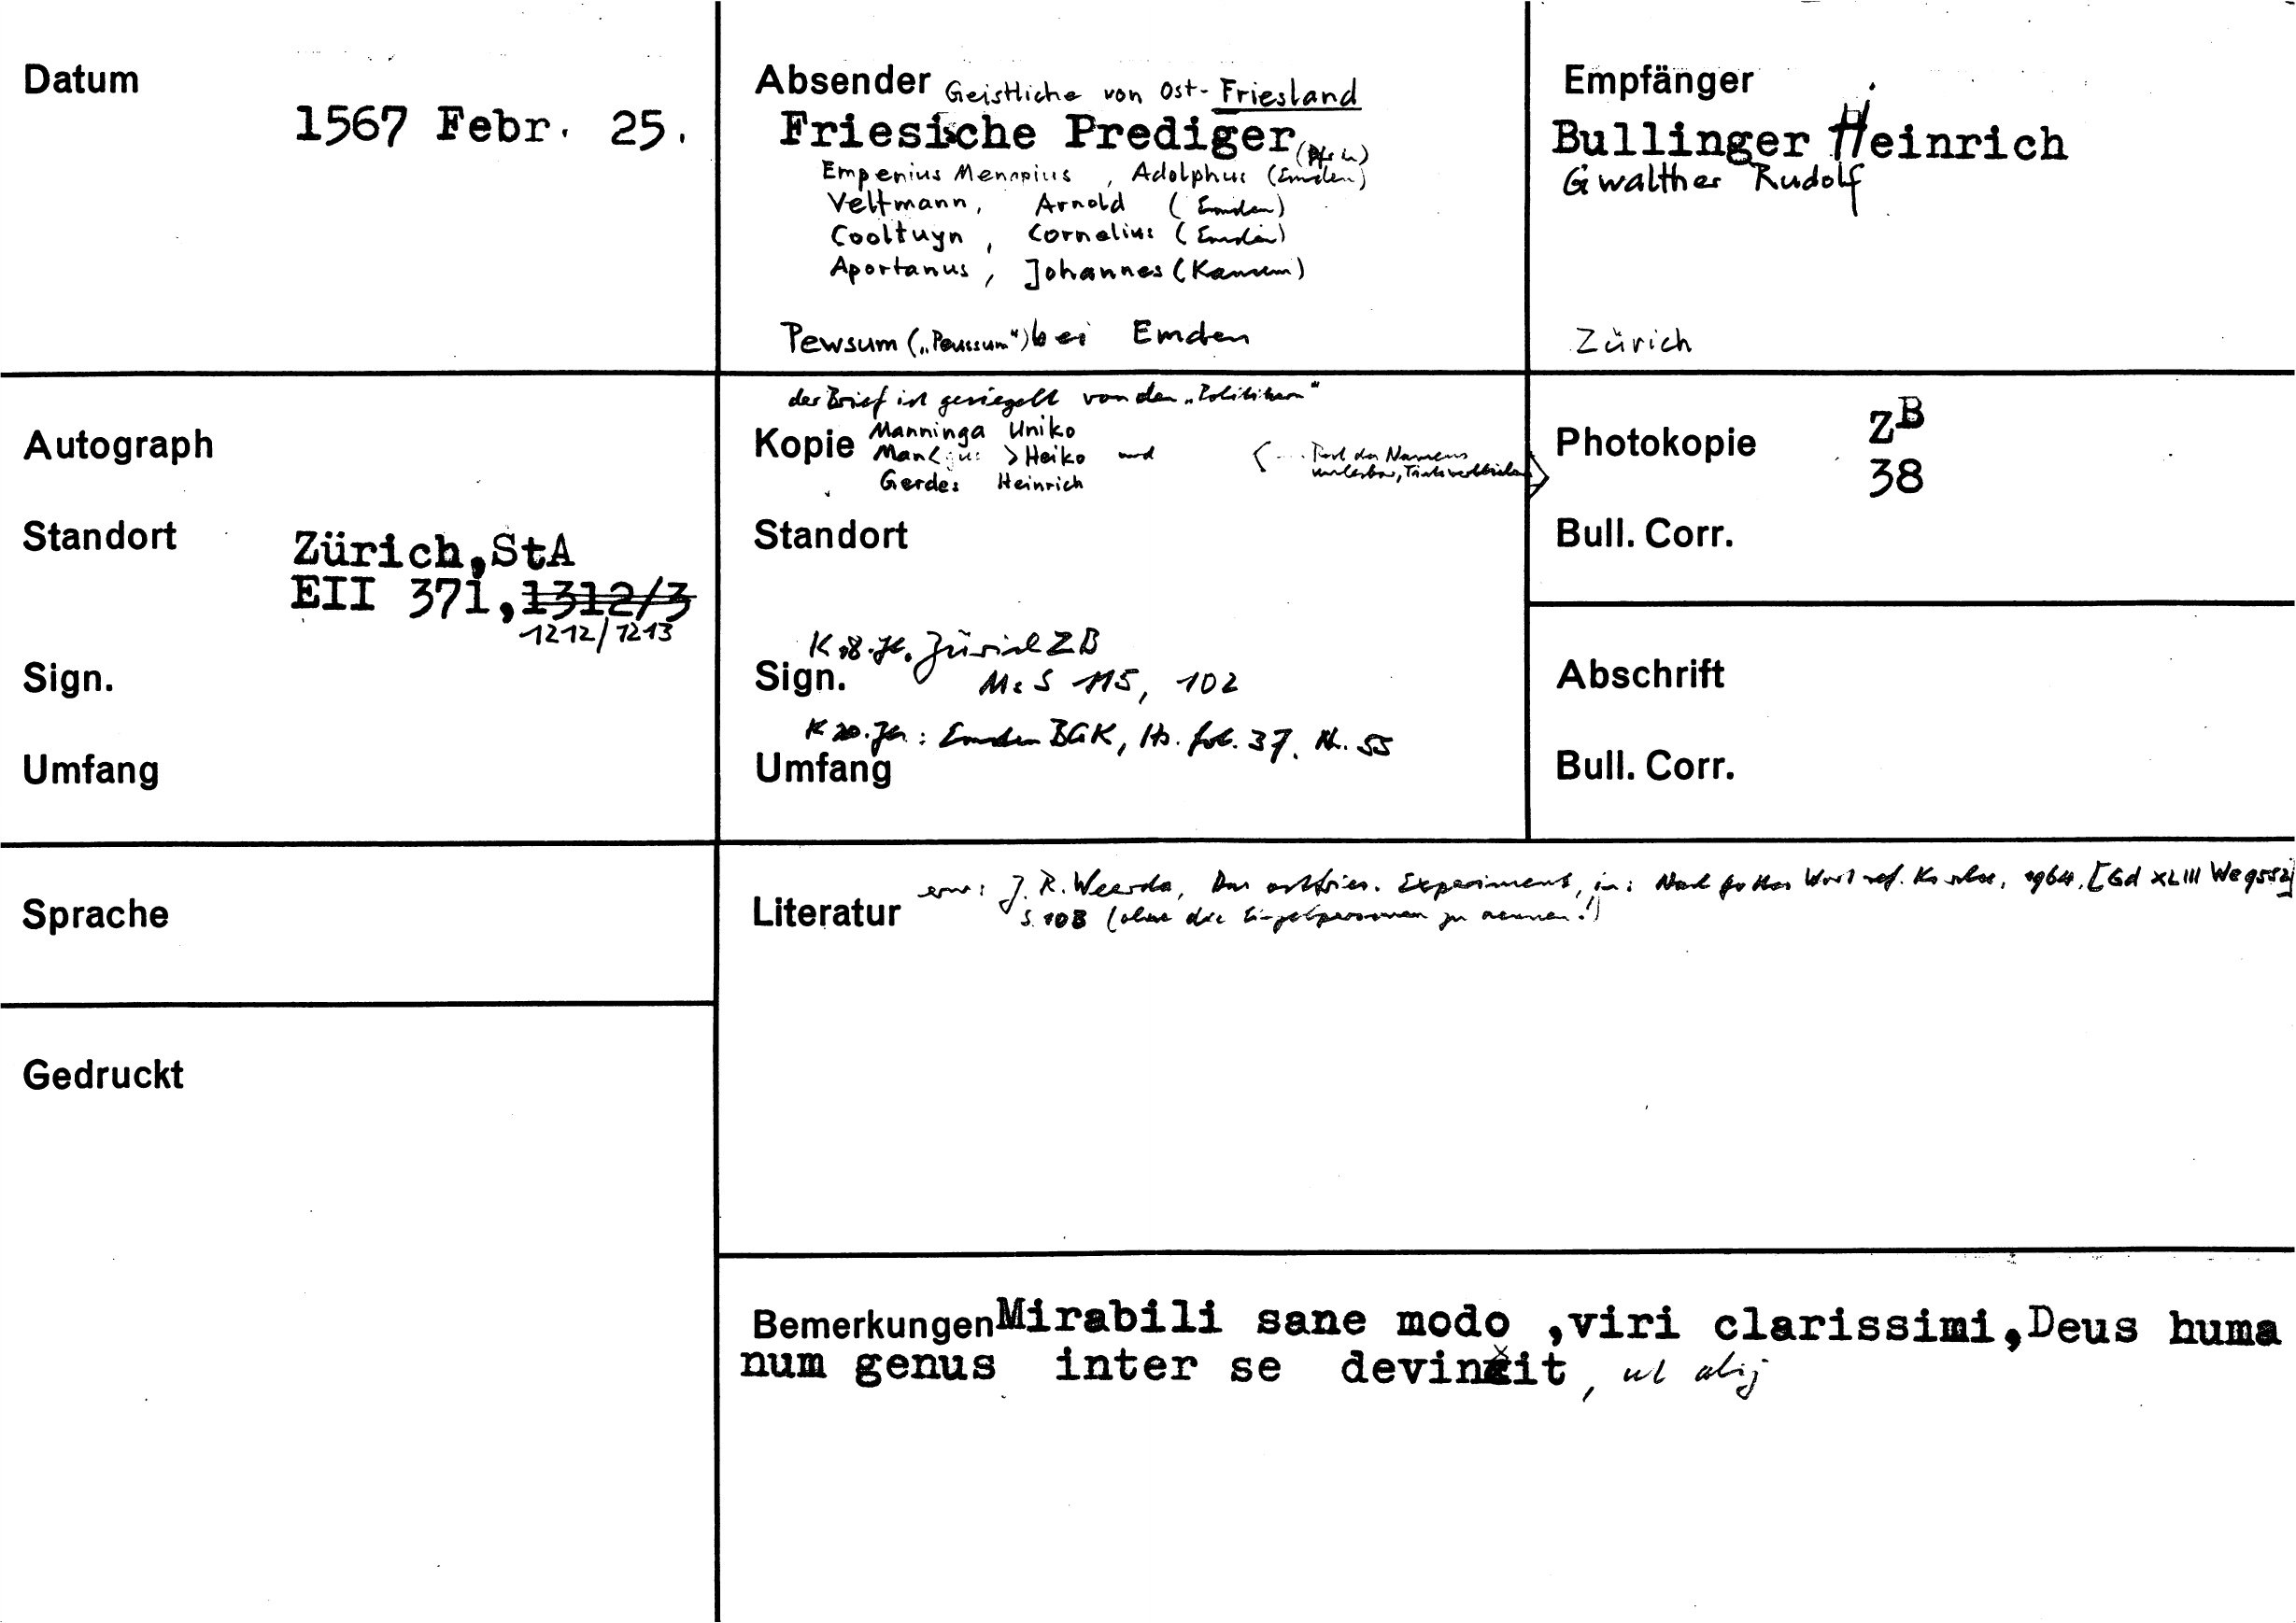 Datum
1567 Febr. 25.
Absender Geistliche von Ost-Friesland
Friesische Prediger
Empenius Menapius, Adolphus (Emden)
Veltmann, Arnold (Emden)
Cooltuyn, Cornelius (Emden)
Aportanus, Johannes (Kanum)
Pewsum („Peussum“) bei Emden
Empfänger
Bullinger Heinrich
Gwalther Rudolf
Zürich
Autograph
Standort Zürich, StA
EII 371, 1312/3
1212/1213
Sign.
Umfang
der Brief ist gesiegelt von den „Politikern“
Kopie Manninga Uniko
Man< > Heiko und
Gerdes Heinrich
<... Rest des Namens
unlesbar, >
Standort
K 18. Jh. Zürich ZB
Sign. Ms S 115, 102
K 20. Jh.: Emden BGK, Hs. fol. 37. Nr. 55
Umfang
Photokopie ZB
38
Bull. Corr.
Abschrift
Bull. Corr.
Sprache
Gedruckt
Literatur erw: J. R. Weerda, Das ostfries. Experiment, in: Nach Gottes Wort ref. Kirche, 1964, [Gd XLIII We 9552]
S. 108 (ohne die Einzelpersonen zu nennen!)
Bemerkungen Mirabili sane modo ,viri clarissimi,Deus huma
num genus inter se devinxit, ut alij